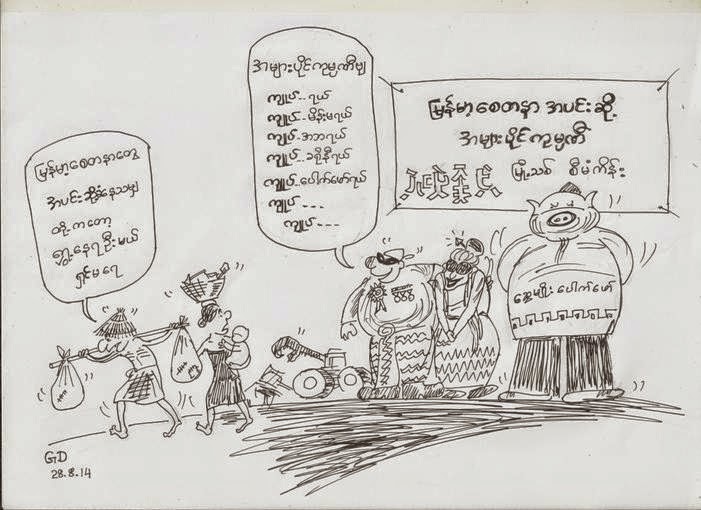 မြန်မာ့စေတနာတွေ
အပင်းဆို့နေသမျှ
တို့ကတော့
ရွှေ့နေရဦးမယ်
ရှင်မရေ
အများပိုင်ကုမ္ပဏီဗျ
ကျုပ်..ရယ်
ကျုပ်-မိန်းမရယ်
ကျုပ်-အဘရယ်
ကျုပ်..ခရိုနီရယ်
ကျုပ်..ပေါက်ဖော်ရယ်
ကျုပ်---
ကျုပ်---
မြန်မာ့စေတနာ အပင်းဆို့
အများပိုင်ကုမ္ပဏီ
မြို့သစ် စီမံကိန်း
ဆွေမျိုးပေါက်ဖော်
GD
28.8.14